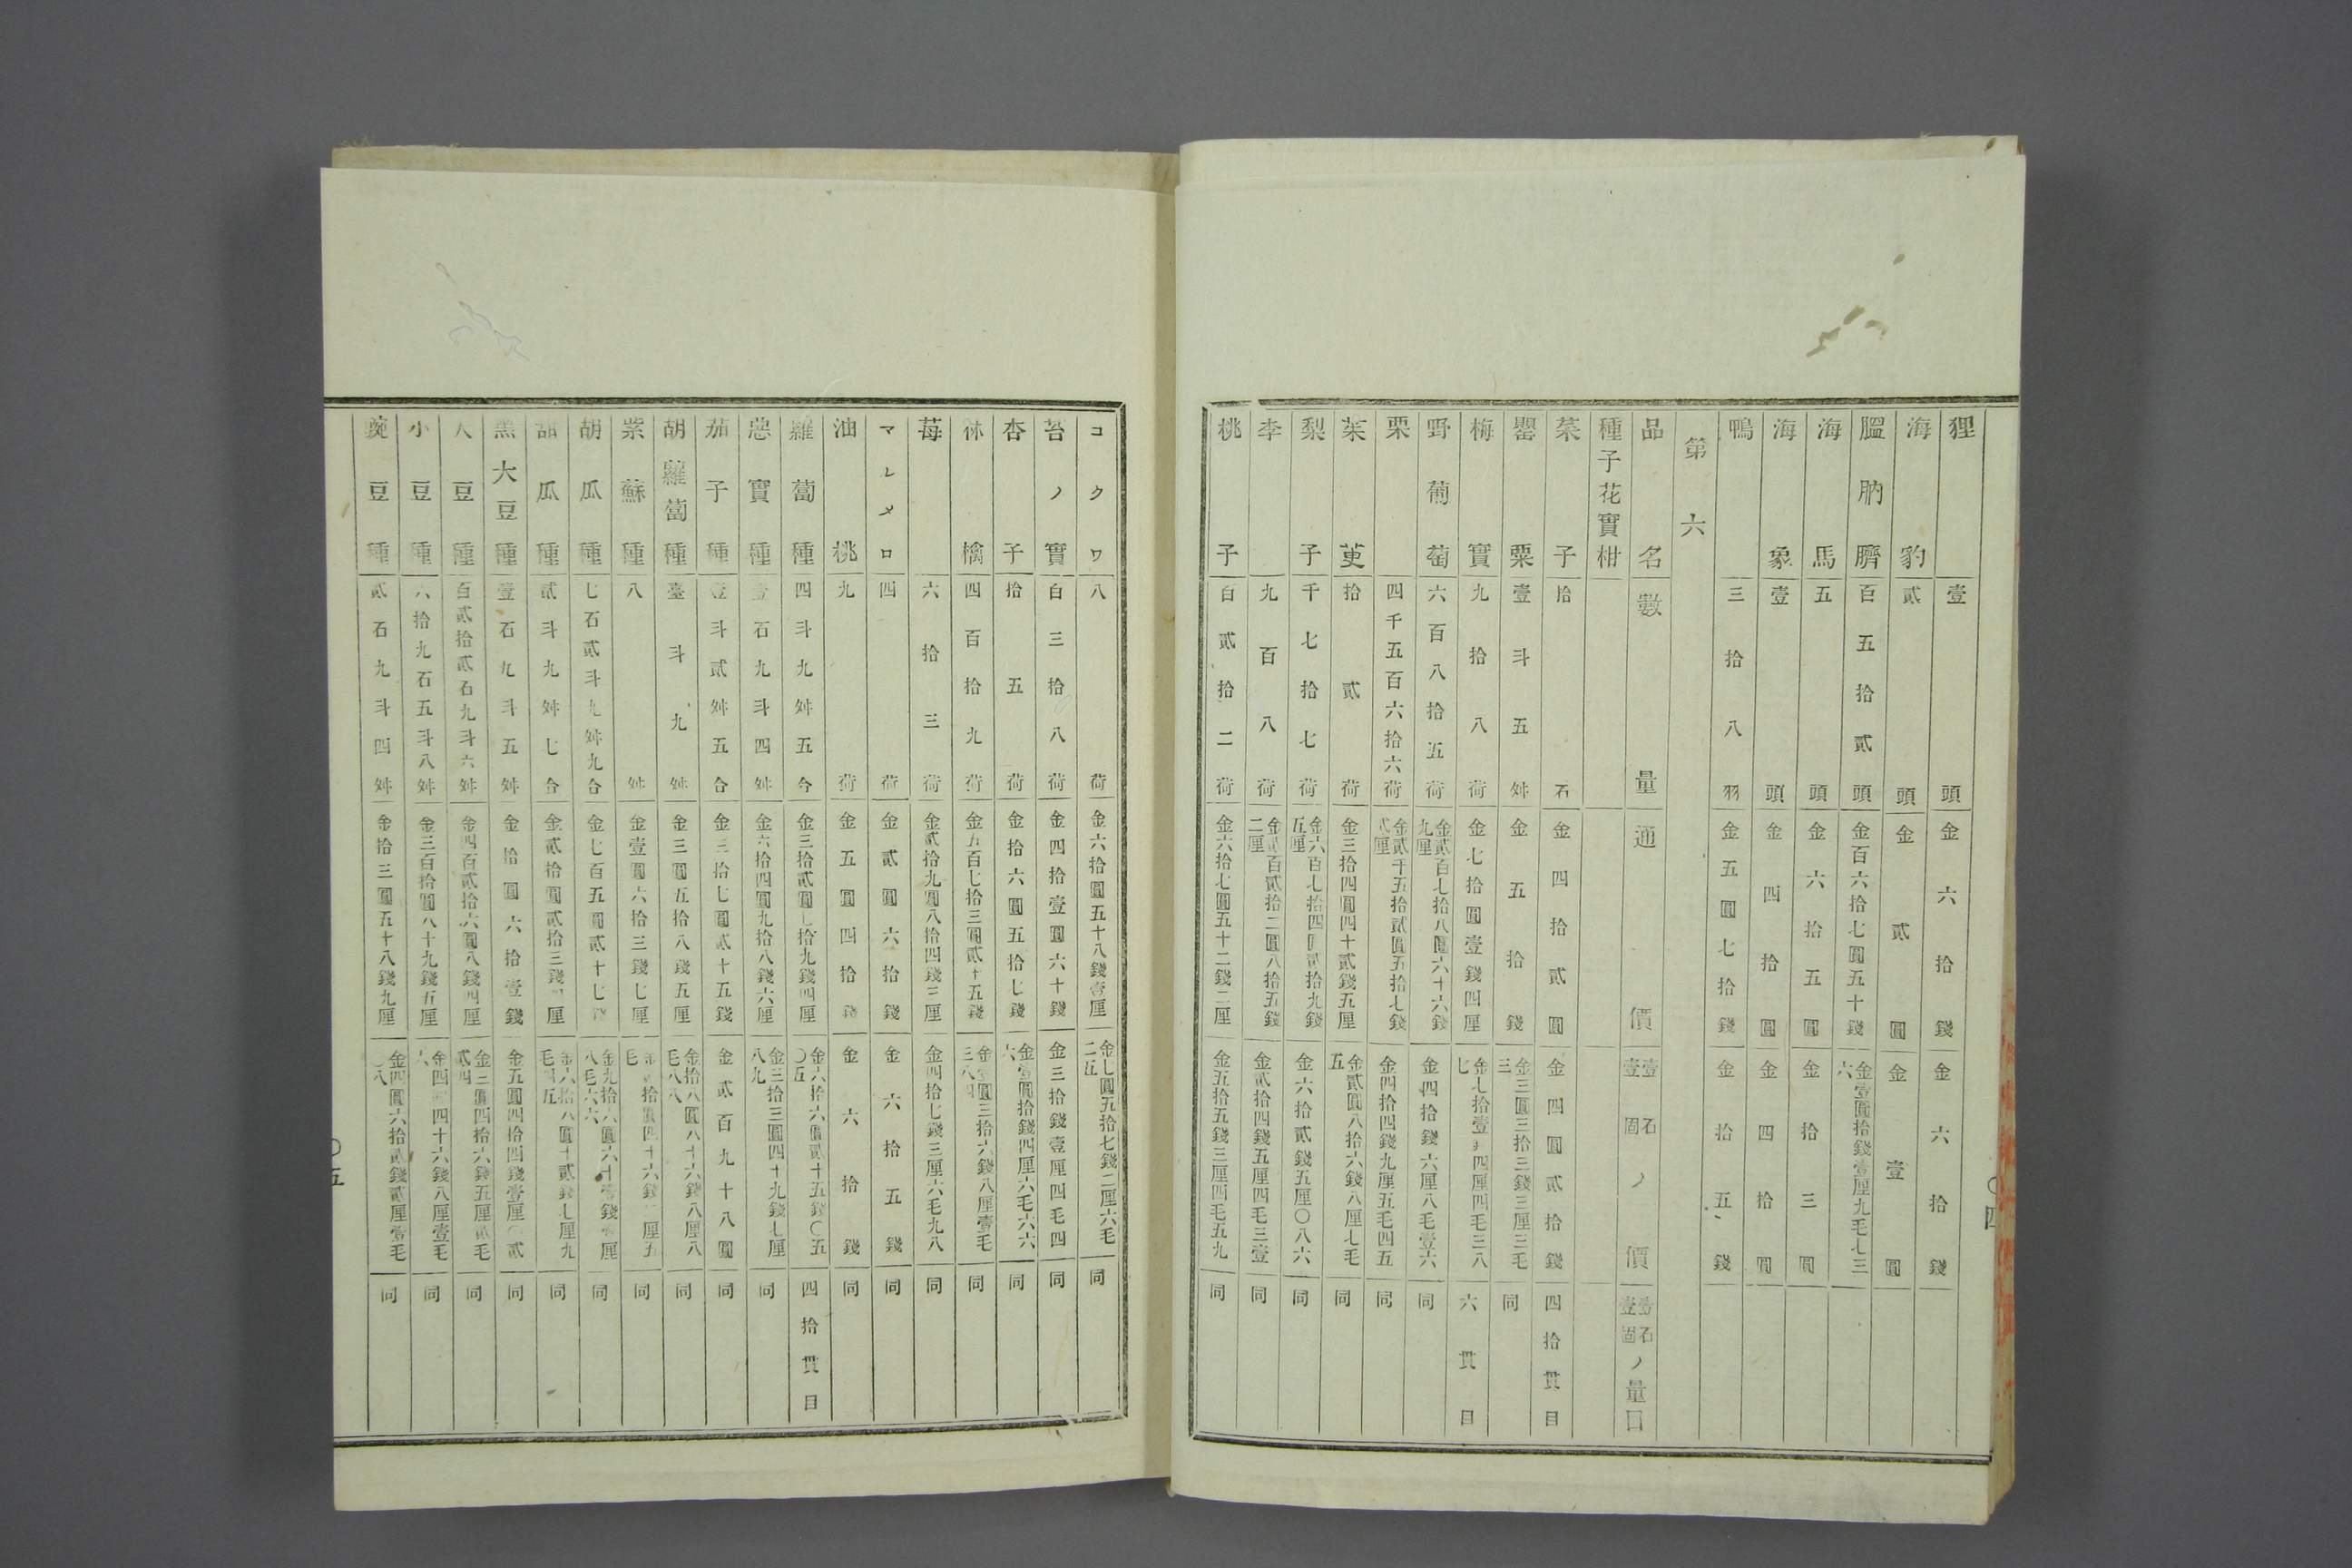 狸 壹頭 金六拾錢 金六拾錢
海豹 貳頭 金貳圓 金壹圓
膃肭臍 百五拾貳頭 金百六拾七圓五十錢 金壹圓拾錢壹厘九毛七三六
海馬 五頭 金六拾五圓 金拾三圓
海象 壹頭 金四拾圓 金四拾圓
鴨 三拾八羽 金五圓七拾錢 金拾五錢
第六
品名 數量 通價 壹石壹固ノ價 壹石壹固ノ量目
種子花實柑
菜子 拾石 金四拾貳圓 金四圓貳拾錢 四拾貫目
罌粟 壹斗五舛 金五拾錢 金三圓三拾三錢三厘三毛三 同
梅實 九拾八荷 金七拾圓壹錢四厘 金七拾壹錢四厘四毛三八七 六貫目
野葡萄 六百八拾五荷 金貳百七拾八圓六十六錢九厘 金四拾錢六厘八毛壹六 同
栗 四千五百六拾六荷 金貳千五拾貳圓五拾七錢貳厘 金四拾四錢九厘五毛四五 同
茱萸 拾貳荷 金三拾四圓四十貳錢五厘 金貳圓八拾六錢八厘七毛五 同
梨子 千七拾七荷 金六百七拾四圓貳拾九錢五厘 金六拾貳錢五厘〇八六 同
李 九百八荷 金貳百貳拾二圓八拾五錢二厘 金貳拾四錢五厘四毛三壹 同
桃子 百貳拾二荷 金六拾七圓五十二錢二厘 金五拾五錢三厘四毛五九 同
〇四
コクワ 八荷 金六拾圓五十八錢壹厘 金七圓五拾七錢二厘六毛二五 同
苔ノ實 百三拾八荷 金四拾壹圓六十錢 金三拾錢壹厘四毛四 同
杏子 拾五荷 金拾六圓五拾七錢 金壹圓拾錢四厘六毛六六六 同
林檎 四百拾九荷 金五百七拾三圓貳十五錢 金壹圓三拾六錢八厘壹毛三八四 同
莓 六拾三荷 金貳拾九圓八拾四錢三厘 金四拾七錢三厘六毛九八 同
マレメロ 四荷 金貳圓六拾錢 金六拾五錢 同
油桃 九荷 金五圓四拾錢 金六拾錢 同
羅蔔種 四斗九舛五合 金三拾貳圓七拾九錢四厘 金六拾六圓貳十五錢〇五〇五 四拾貫目
葱實種 壹石九斗四舛 金六拾四圓九拾八錢六厘 金三拾三圓四十九錢七厘八九 同
茄子種 壹斗貳舛五合 金三拾七圓貳十五錢 金貳百九十八圓 同
胡蘿蔔種 臺斗九舛 金三圓五拾八錢五厘 金拾八圓八十六錢八厘八毛八八 同
紫蘇種 八舛 金壹圓六拾三錢七厘 拾圓四十六錢 厘五毛 同
胡瓜種 七石貳斗九舛九合 金七百五圓貳十七錢 金九拾六圓六十壹錢 厘八毛六六 同
甜瓜種 貳斗九舛七合 金貳拾圓貳拾三錢四厘 金六拾八圓十貳錢七厘九毛四五 同
黑大豆種 壹石九斗五舛 金拾圓六拾壹錢 金五圓四拾四錢壹厘〇貳 同
大豆種 百貳拾貳石九斗六舛 金四百貳拾六圓八錢四厘 金三圓四拾六錢五厘貳毛貳四 同
小豆種 六拾九石五斗八舛 金三百拾圓八十九錢五厘 金四圓四十六錢八厘壹毛六 同
豌豆種 貳石九斗四舛 金拾三圓五十八錢九厘 金四圓六拾貳錢貳厘壹毛〇八 同
〇五